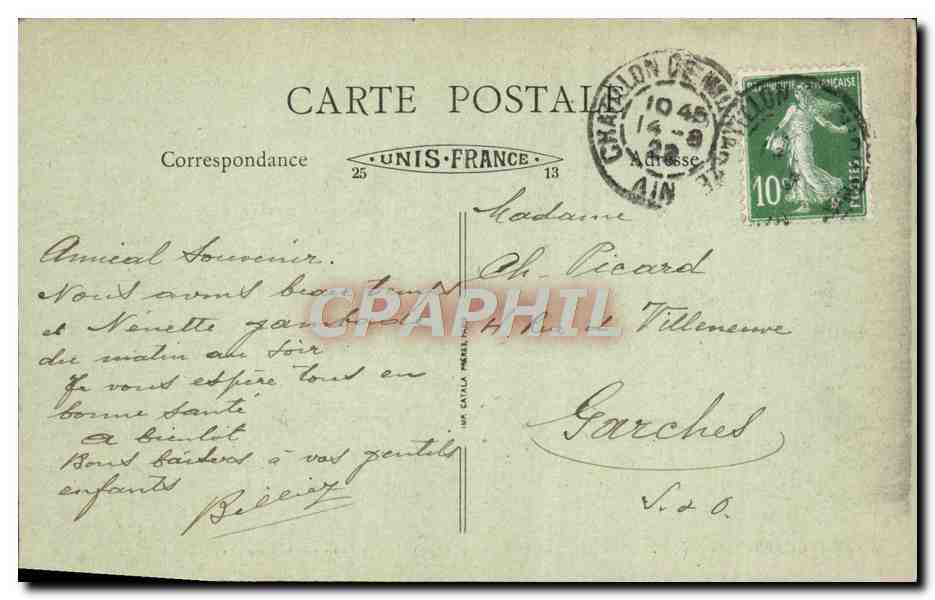 CARTE POSTALE
Correspondance
UNIS-FRANCE
25 13
Adresse
CHATILLON DE MICHAILLE
10 45
14 - 8
22
AIN
REPUBLIQUE FRANÇAISE
10
POSTES
Amical Souvenir.
Nous avons beau temps
et Nénette gambade
du matin au soir
Je vous espère tous en
bonne santé
a bientot
Bons baisers à vos gentils
enfants
Billiez
IMP. CATALA FRÈRES, PARIS
CPAPHIL
Madame
Ch. Picard
4, Rue de Villeneuve
Garches
S. & O.